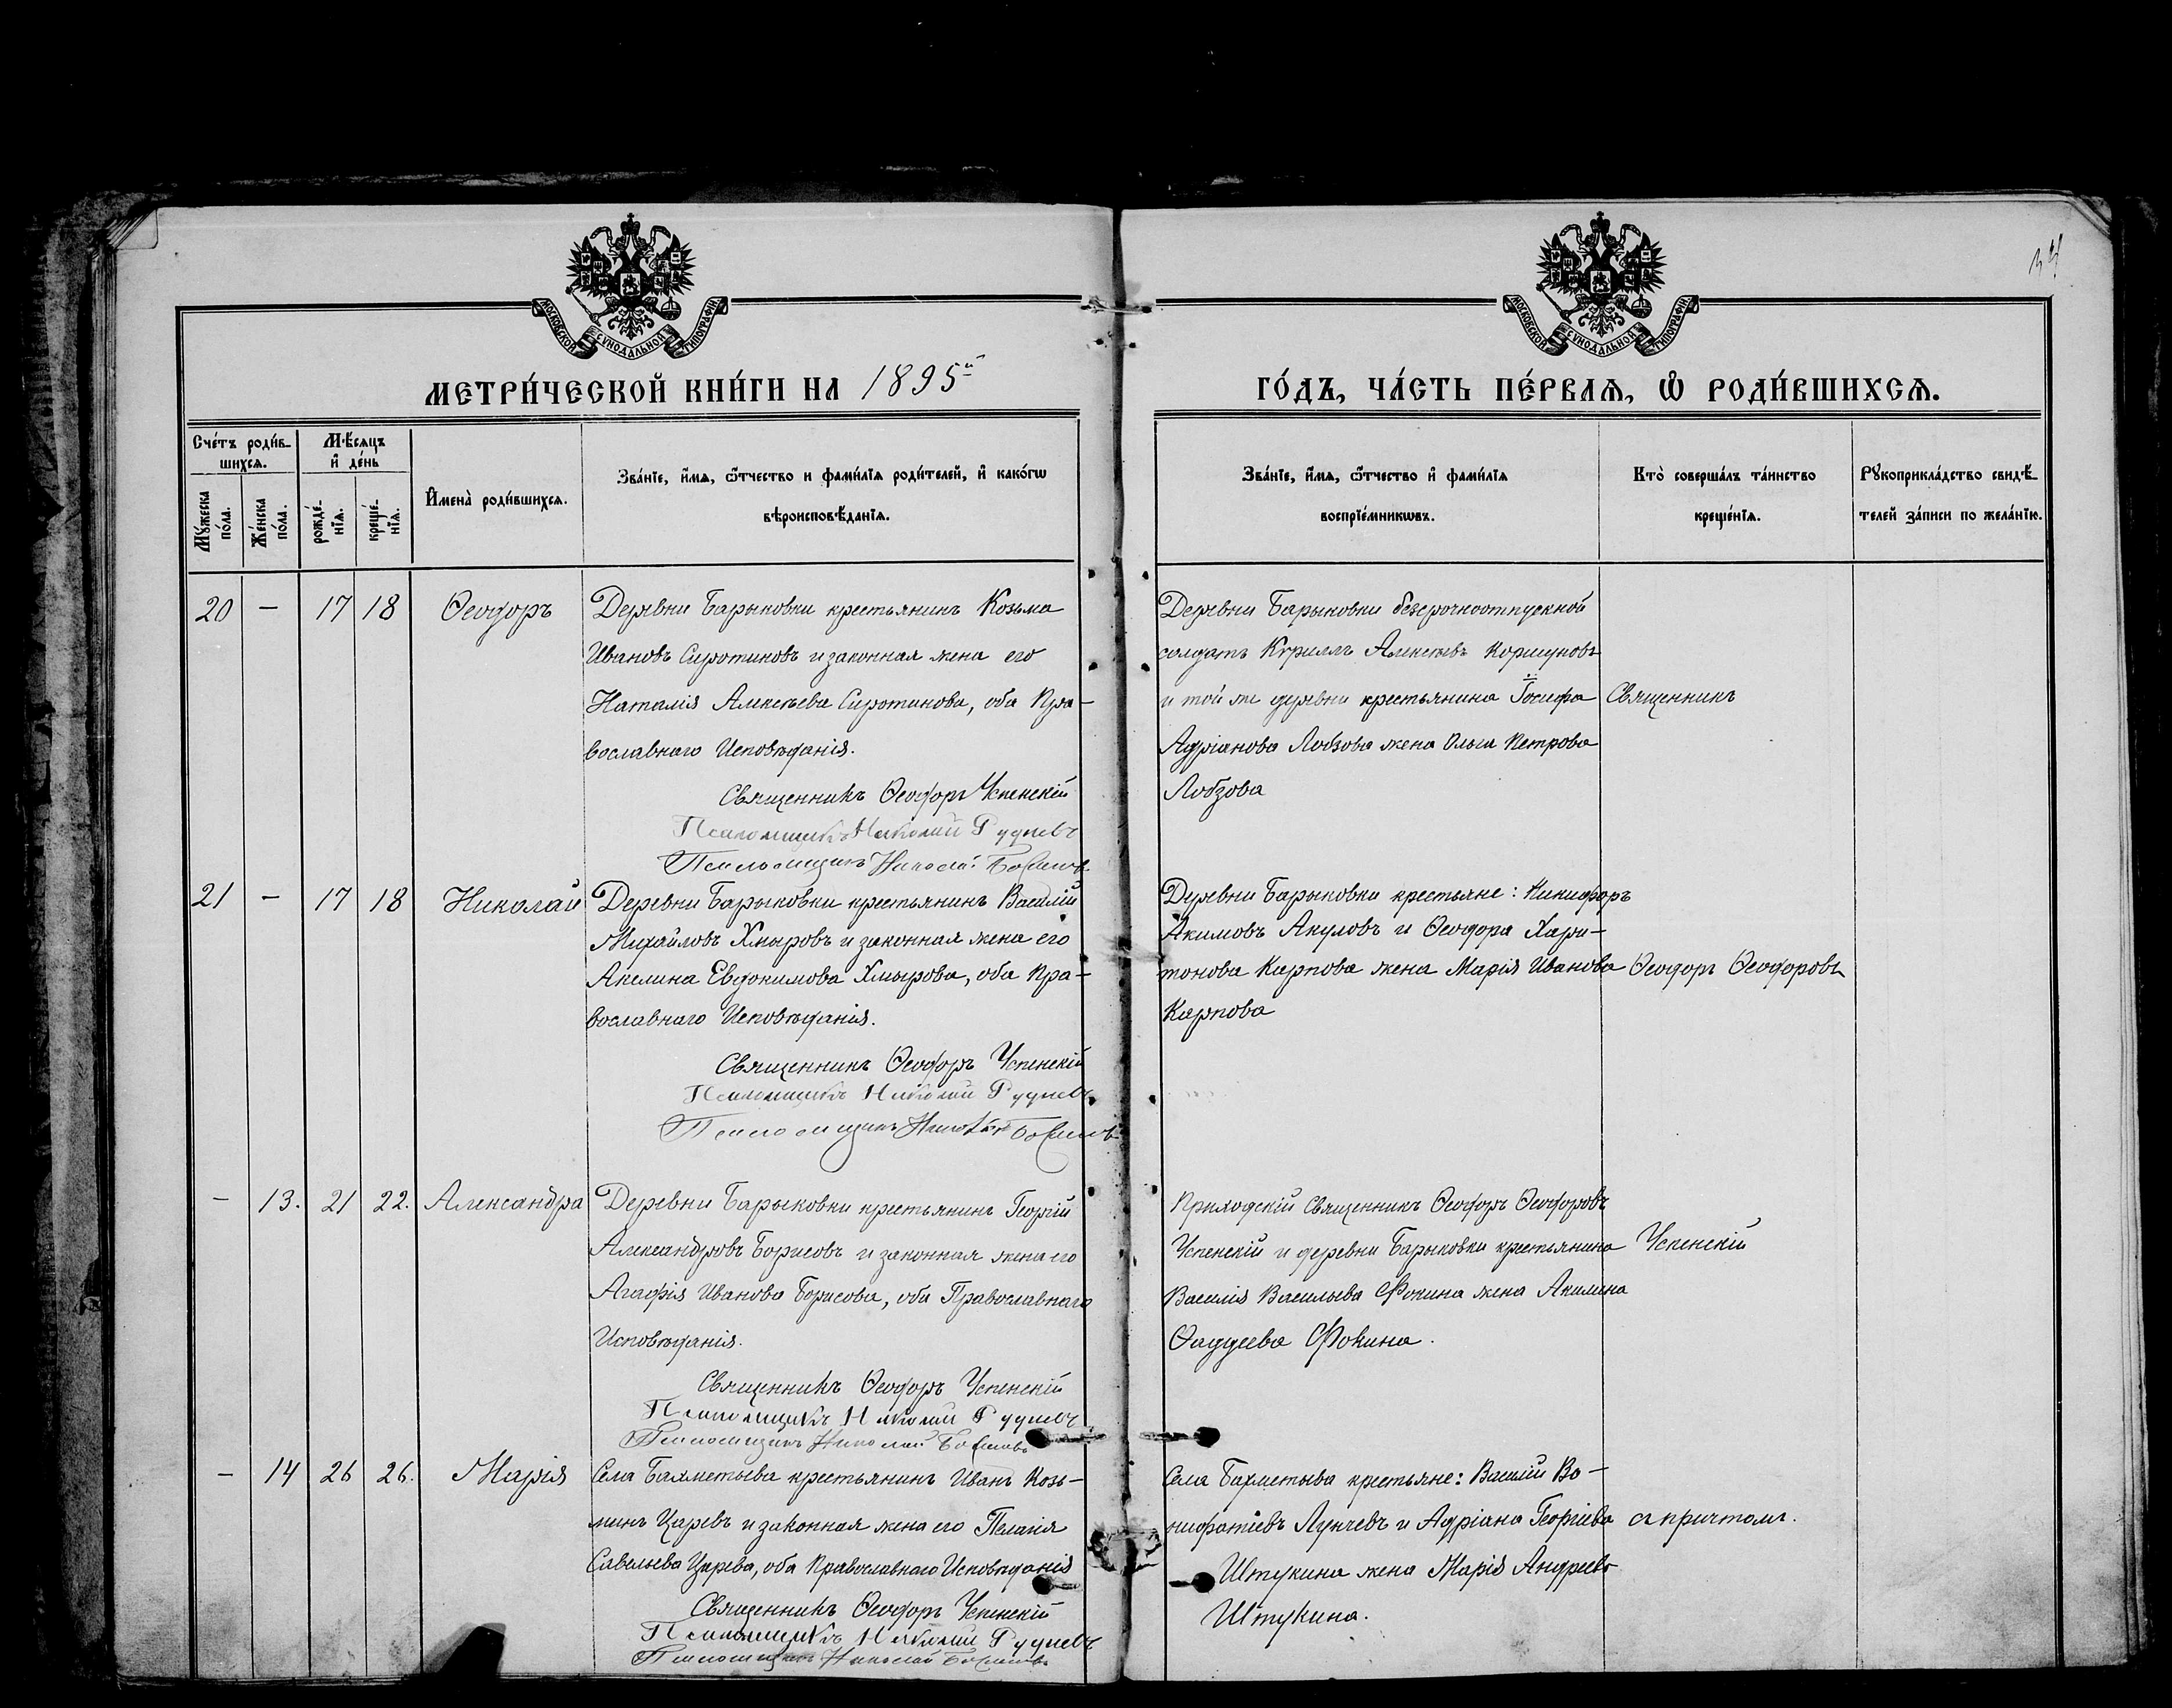 МОСКОВСКОЙ СУНОДАЛЬНОЙ ТИПОГРАФІИ
МОСКОВСКОЙ СУНОДАЛЬНОЙ ТИПОГРАФІИ
МЕТРИ́ЧЕСКОЙ КНИ́ГИ НА 1895й
ГО́ДЪ, ЧА́СТЬ ПЕ́РВАѦ, Ѽ РОДИ́ВШИХСѦ.
Сче́тъ роди́в-
шихсѧ.
Мѣ́сѧцъ
и҆ де́нь
Мꙋ́жеска
по́ла.
Же́нска
по́ла.
рожде́-
нїѧ.
креще́-
нїѧ.
И҆мена̀ роди́вшихсѧ.
Зва́нїе, и҆́мѧ, ѻ҆́тчество и фами́лїѧ роди́телей, и҆ како́гѡ
вѣроисповѣ́данїѧ.
Зва́нїе, и҆́мѧ, ѻ҆́тчество и҆ фами́лїѧ
воспрїе́мникѡвъ.
Кто̀ соверша́лъ та́инство
креще́нїѧ.
Рꙋкоприкла́дство свидѣ́-
телей за́писи по жела́нїю.
20 — 17 18 Ѳеодоръ
Деревни Барыковки крестьянинъ Козьма
Ивановъ Сиротиновъ и законная жена его
Наталія Алексѣева Сиротинова, оба Пра-
вославнаго Исповѣданія.
Священникъ Ѳеодоръ Успенскій
Псаломщикъ Николай Рудневъ
Псаломщикъ Николай
Деревни Барыковки безсрочноотпускной
солдатъ Кѵриллъ Алексѣевъ Коршуновъ
и той же деревни крестьянина Іосифа
Адріанова Лобзова жена Ольга Петрова
Лобзова
Священникъ
21 — 17 18 Николай
Деревни Барыковки крестьянинъ Василій
Михайловъ Хмыровъ и законная жена его
Акелина Евдокимова Хмырова, оба Пра-
вославнаго Исповѣданія.
Священникъ Ѳеодоръ Успенскій
Псаломщикъ Николай Рудневъ
Псаломщикъ Николай
Деревни Барыковки крестьяне: Никифоръ
Акимовъ Акуловъ и Ѳеодора Хари-
тонова Карпова жена Марія Иванова
Карпова
Ѳеодоръ Ѳеодоровъ
— 13. 21 22. Александра
Деревни Барыковки крестьянинъ Георгій
Александровъ Борисовъ и законная жена его
Агафія Иванова Борисова, оба Православнаго
Исповѣданія.
Священникъ Ѳеодоръ Успенскій
Псаломщикъ Николай Рудневъ
Псаломщикъ Николай
Приходскій Священникъ Ѳеодоръ Ѳеодоровъ
Успенскій и деревни Барыковки крестьянина
Василія Васильева Фокина жена Акилина
Ѳаддеева Фокина.
Успенскій
— 14 26 26. Марія
Села Бахметьева крестьянинъ Иванъ Козь-
минъ Царевъ и законная жена его Пелагія
Савельева Царева, оба Православнаго Исповѣданія
Священникъ Ѳеодоръ Успенскій
Псаломщикъ Николай Рудневъ
Псаломщикъ Николай
Села Бахметьева крестьяне: Василій Во-
нифатіевъ Лунчевъ и Адріана Георгіева
Штукина жена Марія Андреева
Штукина.
съ причтомъ.